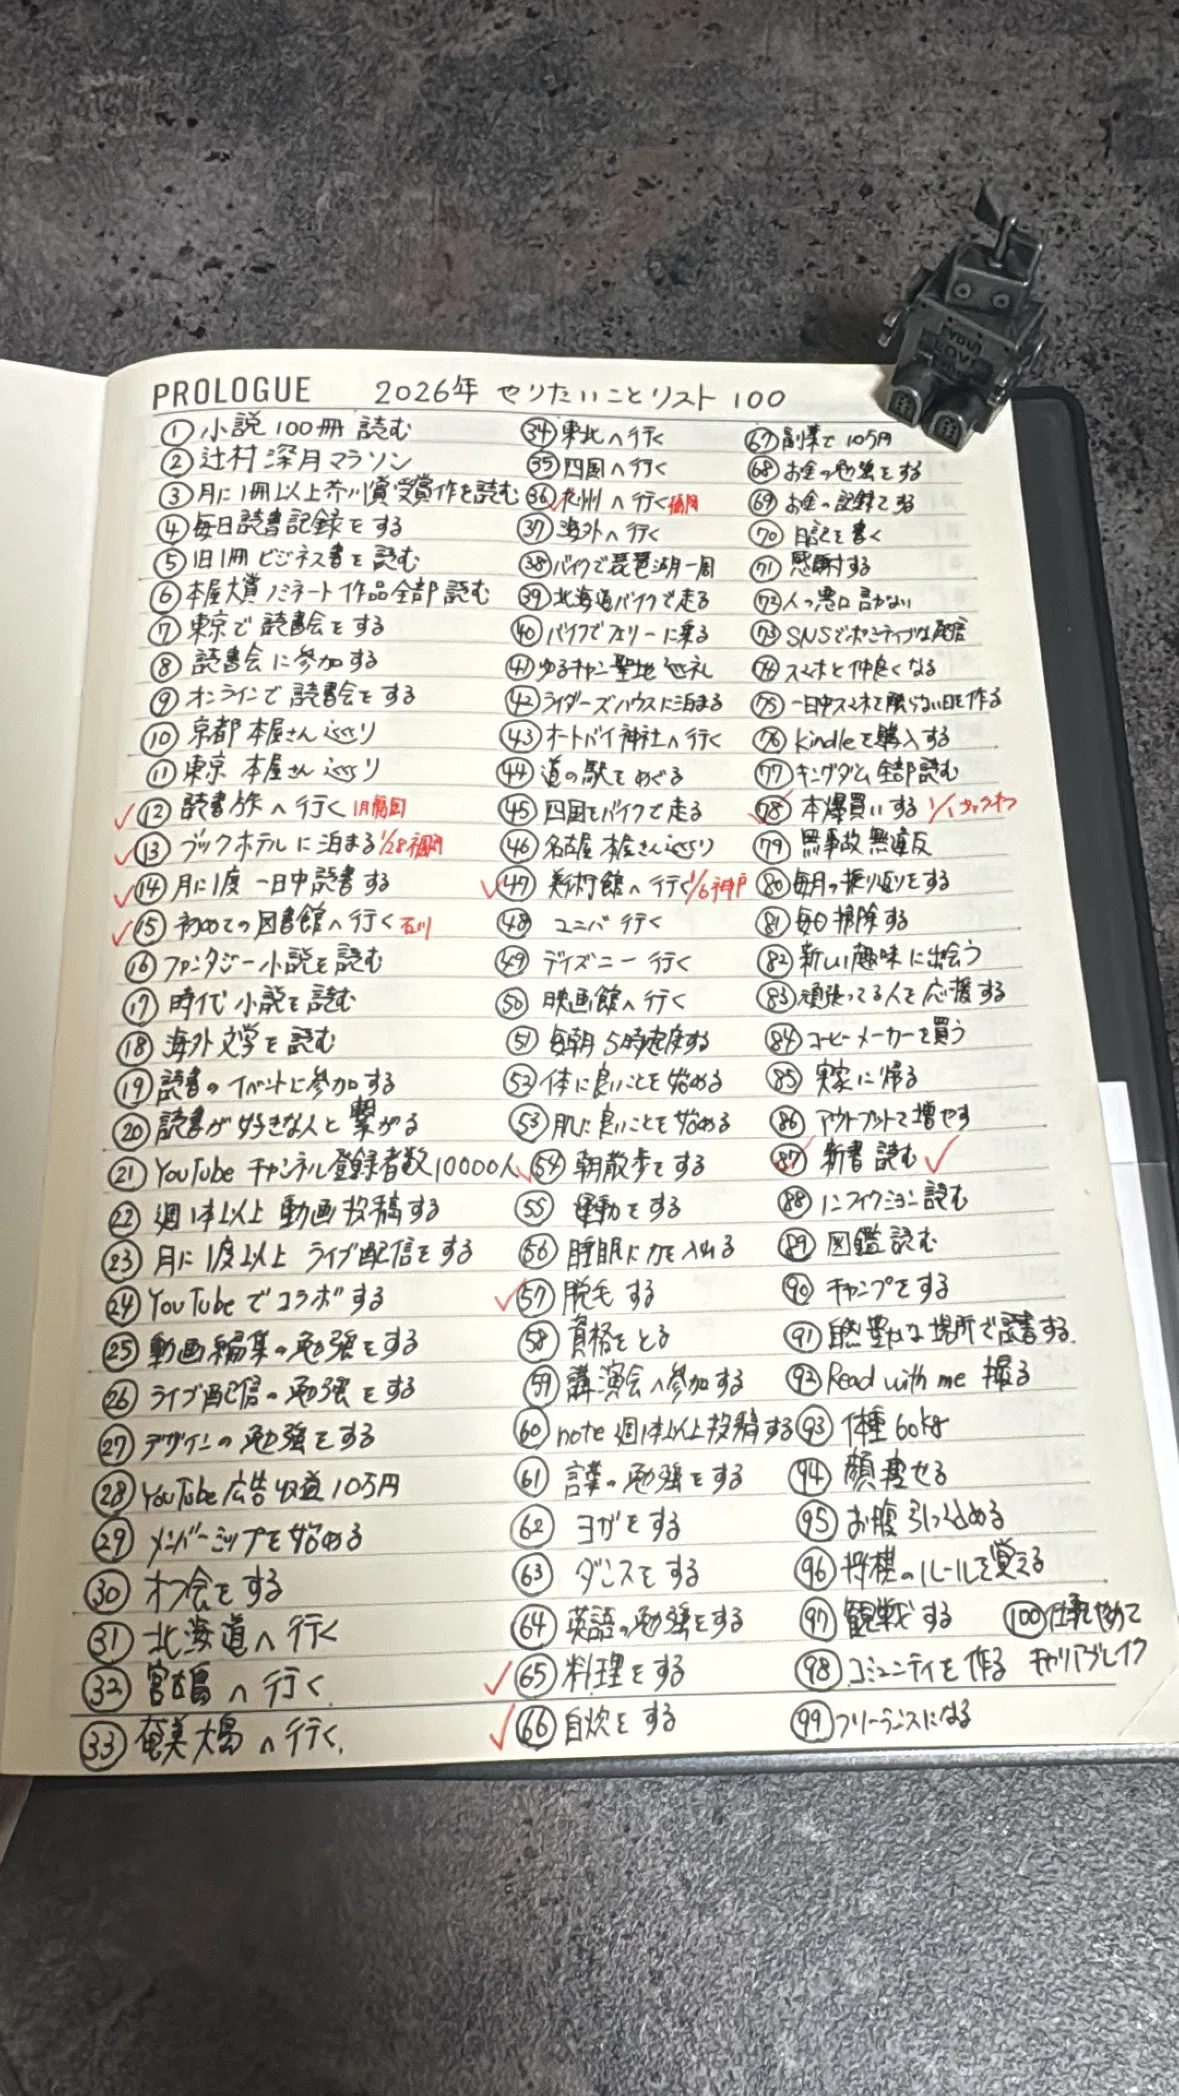 PROLOGUE 2026年 やりたいことリスト 100
① 小説100冊 読む
② 辻村深月マラソン
③ 月に1冊以上芥川賞受賞作を読む
④ 毎日読書記録をする
⑤ 1日1冊 ビジネス書を読む
⑥ 本屋大賞ノミネート作品全部読む
⑦ 東京で読書会をする
⑧ 読書会に参加する
⑨ オンラインで読書会をする
⑩ 京都 本屋さん巡り
⑪ 東京 本屋さん巡り
⑫ 読書旅へ行く 1月福岡
⑬ ブックホテルに泊まる 1/28 福岡
⑭ 月に1度 一日中読書する
⑮ 初めての図書館へ行く 石川
⑯ ファンタジー小説を読む
⑰ 時代小説を読む
⑱ 海外文学を読む
⑲ 読書のイベントに参加する
⑳ 読書が好きな人と繋がる
㉑ YouTube チャンネル登録者数10000人
㉒ 週1本以上 動画投稿する
㉓ 月に1度以上 ライブ配信をする
㉔ YouTubeでコラボする
㉕ 動画編集の勉強をする
㉖ ライブ配信の勉強をする
㉗ デザインの勉強をする
㉘ YouTube広告収益10万円
㉙ メンバーシップを始める
㉚ オフ会をする
㉛ 北海道へ行く
㉜ 宮古島へ行く
㉝ 奄美大島へ行く.
㉞ 東北へ行く
㉟ 四国へ行く
㊱ 九州へ行く 福岡
㊲ 海外へ行く
㊳ バイクで琵琶湖一周
㊴ 北海道バイクで走る
㊵ バイクでフェリーに乗る
㊶ ゆるキャン聖地巡礼
㊷ ライダーズハウスに泊まる
㊸ オートバイ神社へ行く
㊹ 道の駅をめぐる
㊺ 四国をバイクで走る
㊻ 名古屋 本屋さん巡り
㊼ 美術館へ行く 1/6 神戸
㊽ ユニバ 行く
㊾ ディズニー 行く
㊿ 映画館へ行く
51 毎朝5時起床する
52 体に良いことを始める
53 肌に良いことを始める
54 朝散歩をする
55 運動をする
56 睡眠に力を入れる
57 脱毛する
58 資格をとる
59 講演会へ参加する
60 note 週1本以上投稿する
61 言葉の勉強をする
62 ヨガをする
63 ダンスをする
64 英語の勉強をする
65 料理をする
66 自炊をする
67 副業で10万円
68 お金の勉強をする
69 お金の記録をする
70 日記を書く
71 感謝する
72 人の悪口言わない
73 SNSでポジティブな発信
74 スマホと仲良くなる
75 一日中スマホを触らない日を作る
76 Kindleを購入する
77 キングダム全部読む
78 本爆買いする 1/1
79 無事故無違反
80 毎月の振り返りをする
81 毎日掃除する
82 新しい趣味に出会う
83 頑張ってる人を応援する
84 コーヒーメーカーを買う
85 実家に帰る
86 アウトプットを増やす
87 新書 読む
88 ノンフィクション読む
89 図鑑読む
90 キャンプをする
91 自然豊かな場所で読書する.
92 Read with me 撮る
93 体重60kg
94 顔痩せる
95 お腹引っ込める
96 将棋のルールを覚える
97 観戦する
98 コミュニティを作る
99 フリーランスになる
100 仕事をやめて
キャリアブレイク
YOU
LOVE